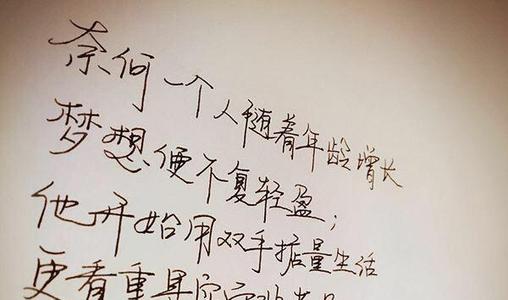 奈何一个人随着年龄增长
梦想便不复轻盈；
他开始用双手掂量生活
更看重